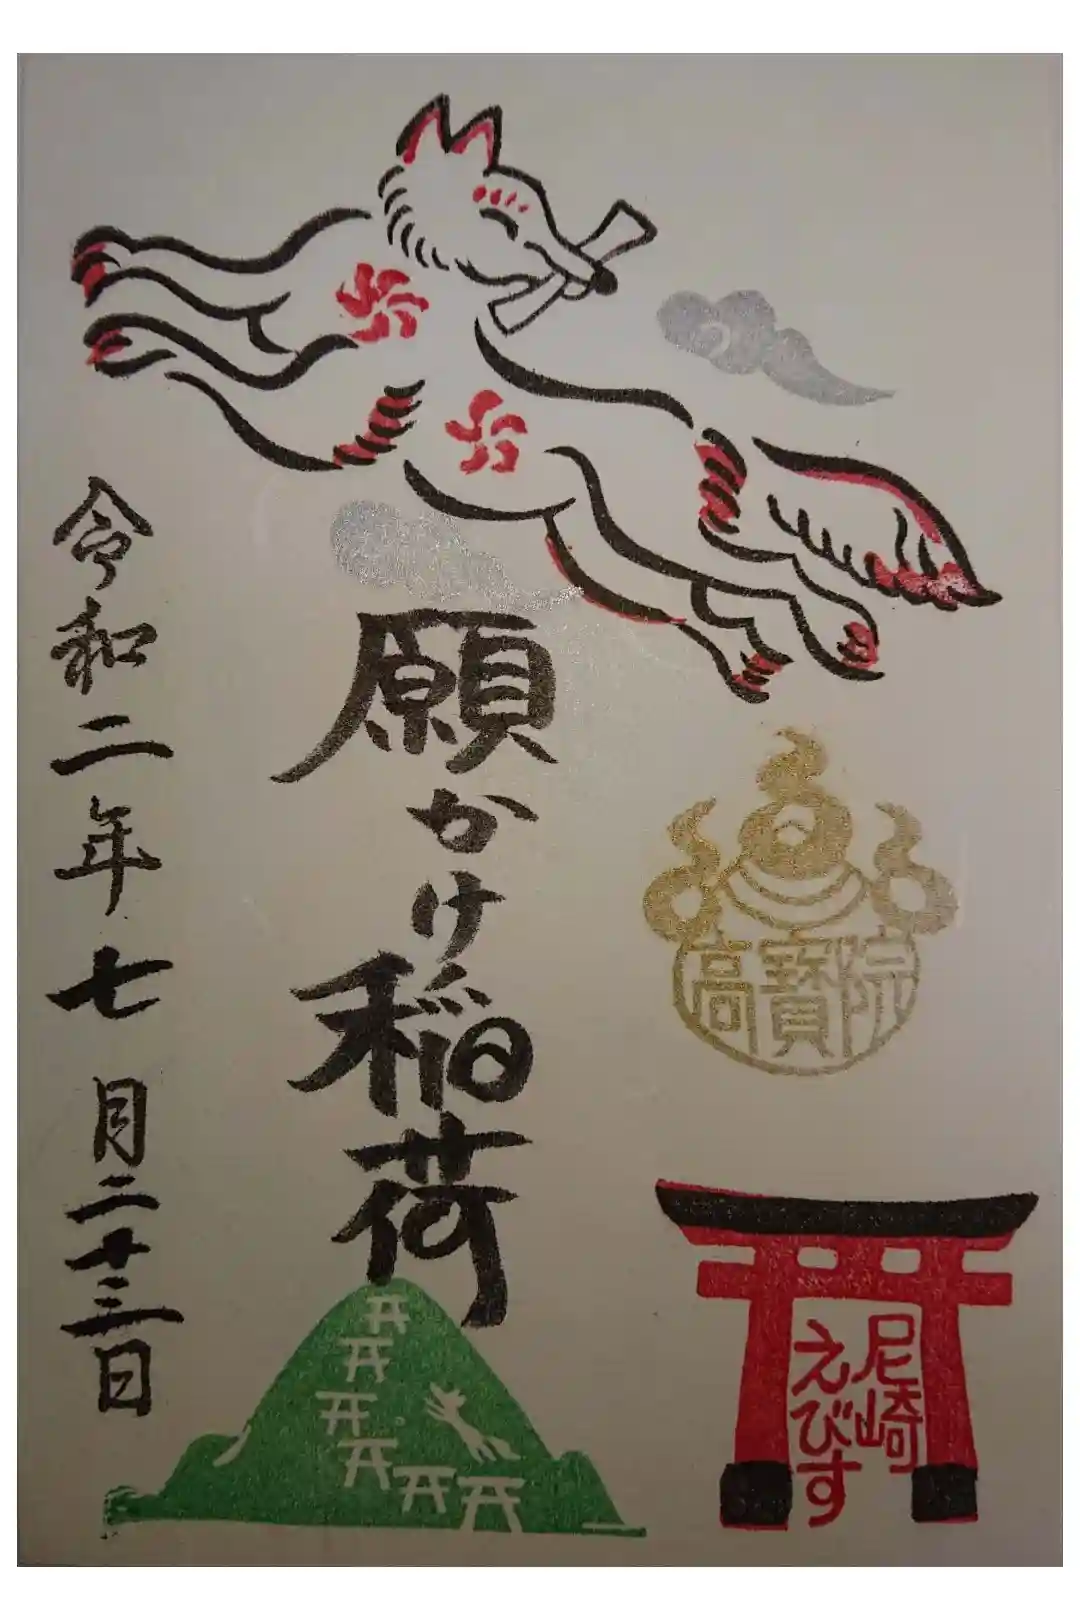 高寳院
尼崎
えびす
願かけ稲荷
令和二年七月二十三日